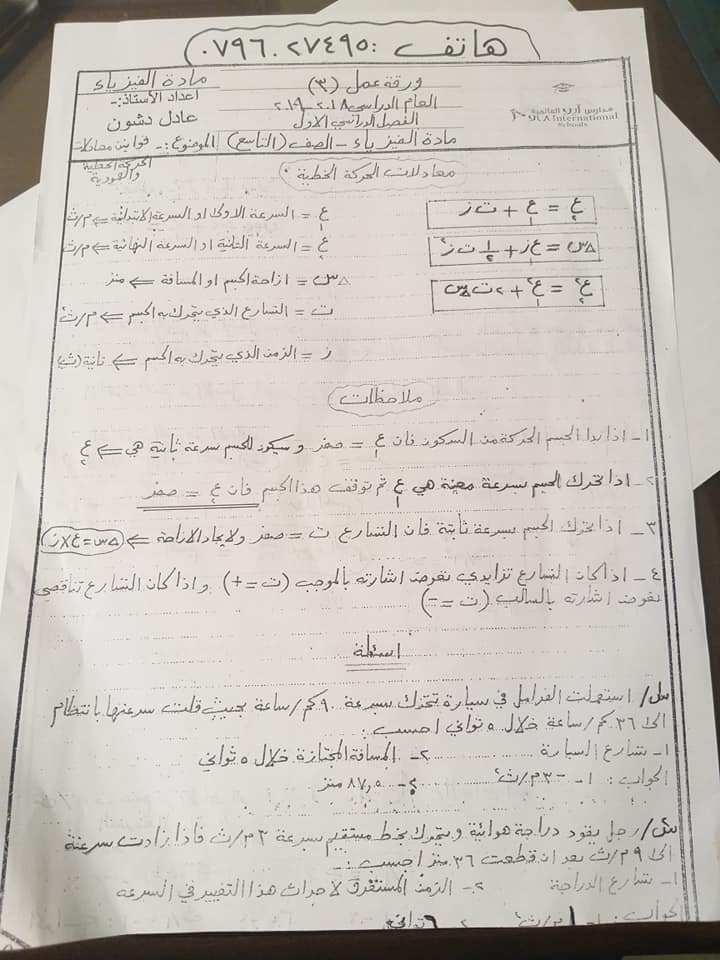 هاتف : ٠٧٩٦٠٢٧٤٩٥
ورقة عمل (٣)
مادة الفيزياء
العام الدراسي ٢٠١٨-٢٠١٩
اعداد الاستاذ:-
الفصل الدراسي الاول
عادل دشون
International
Schools
مادة الفيزياء - الصف (التاسع)
الموضوع:- قوانين معادلات
الحركة الخطية
معادلات الحركة الخطية
ع٢ = ع١ + ت ز
ع١ = السرعة الاولى او السرعة الابتدائية ⇐ م/ث
△س = ع١ز + ١/٢ ت ز²
ع٢ = السرعة الثانية او السرعة النهائية ⇐ م/ث
ع٢² = ع١² + ٢ ت △س
△س = ازاحة الجسم او المسافة ⇐ متر
ت = التسارع الذي يتحرك به الجسم ⇐ م/ث²
ز = الزمن الذي يتحرك به الجسم ⇐ ثانية (ث)
ملاحظات
١- اذا بدا الجسم الحركة من السكون فان ع١ = صفر و سيكون للجسم سرعة ثانية هي ⇐ ع٢
٢- اذا تحرك الجسم بسرعة معينة هي ع١ ثم توقف هذا الجسم فان ع٢ = صفر
٣- اذا تحرك الجسم بسرعة ثابتة فان التسارع ت = صفر ولايجاد الازاحة ⇐ △س = ع × ز
٤- اذا كان التسارع تزايدي نعوض اشارته بالموجب (ت = +) و اذا كان التسارع تناقصي
نعوض اشارته بالسالب (ت = -)
اسئلة
س١/ استعملت الفرامل في سيارة تتحرك بسرعة ٩٠ كم/ساعة بحيث قلت سرعتها بانتظام
الى ٣٦ كم/ساعة خلال ٥ ثواني احسب :
١- تسارع السيارة ٢- المسافة المجتازة خلال ٥ ثواني
الجواب : ١- -٣ م/ث² ٢- ٨٧,٥ متر
س٢/ رجل يقود دراجة هوائية و يتحرك بخط مستقيم بسرعة ٣ م/ث فاذا زادت سرعته
الى ٩ م/ث بعد ان قطعت ٣٦ متر احسب :-
١- تسارع الدراجة ٢- الزمن المستغرق لاحداث هذا التغيير في السرعة
الجواب : ١- ١ م/ث² ٢- ٦ ثواني